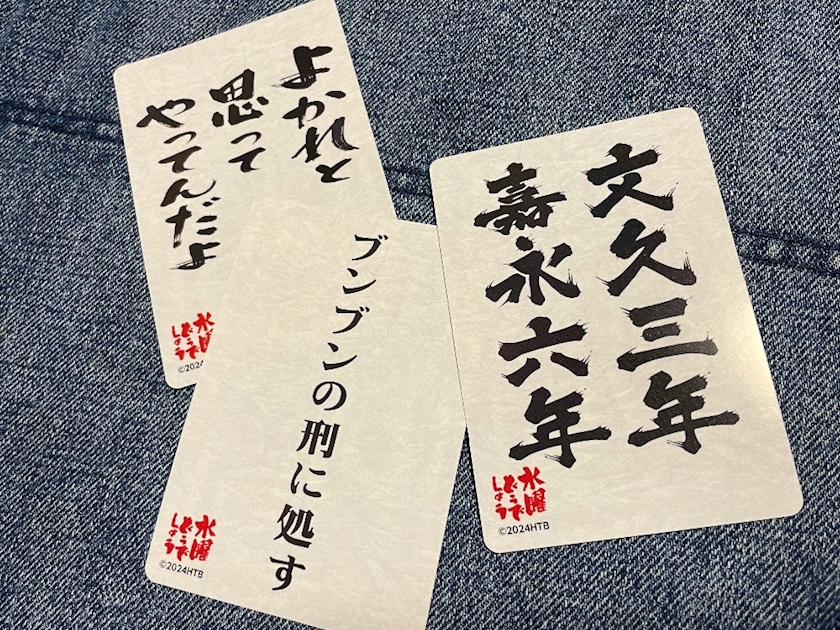 よかれと
思って
やってんだよ
水曜
どうで
しょう
©2024
ブンブンの刑に処す
水曜
どうで
しょう
©2024HTB
文久三年
嘉永六年
水曜
どうで
しょう
©2024HTB